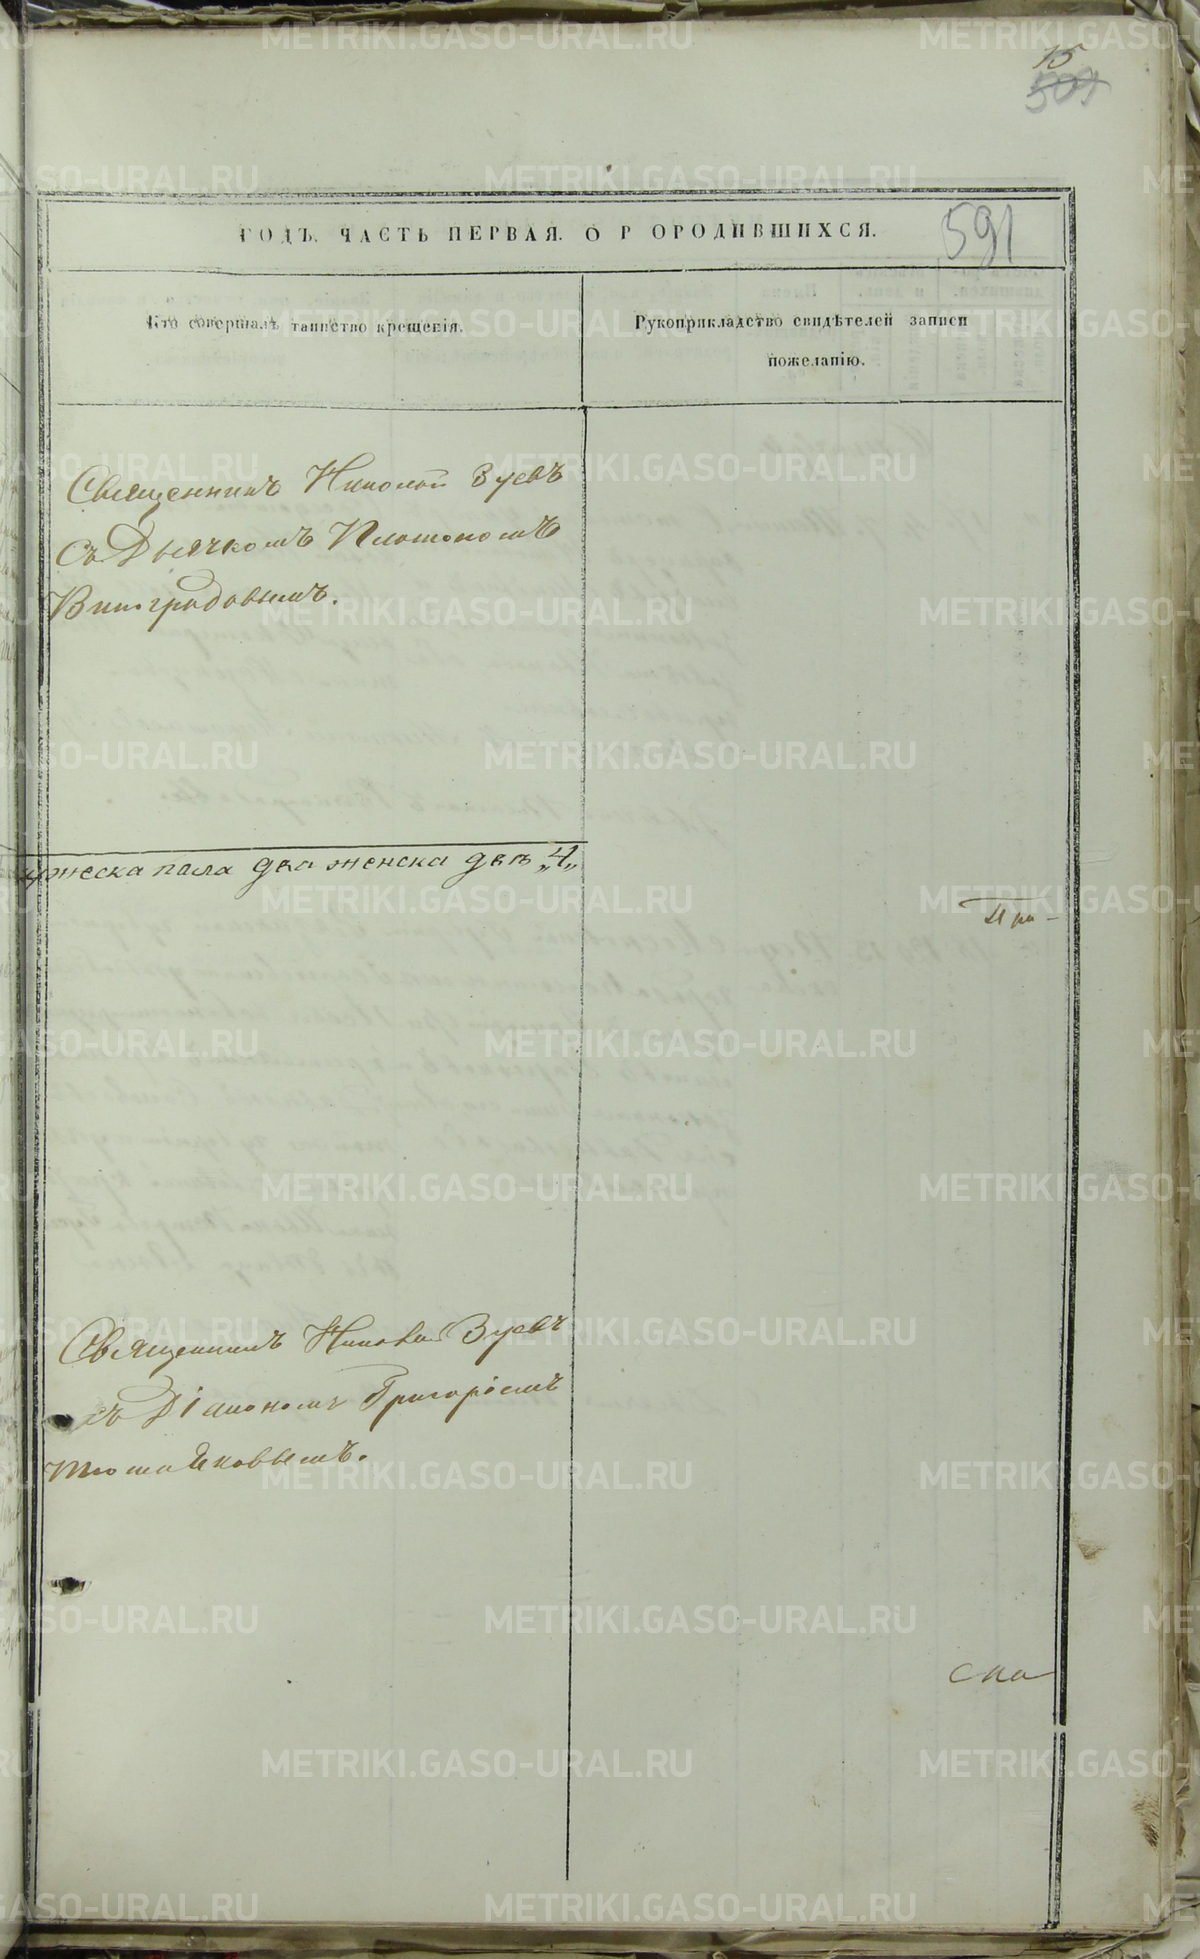 15
509
591
ГОДЪ. ЧАСТЬ ПЕРВАЯ. О Р ОРОДИВШИХСЯ.
Кто совершалъ таинство крещенія.
Рукоприкладство свидѣтелей записи
пожеланію.
Священникъ Николай Зуевъ
съ Дьячкомъ Платономъ
Виноградовымъ.
мужеска пола два женска двѣ „4„
При-
Священникъ Николай Зуевъ
съ Діакономъ Григоріемъ
Ска
METRIKI.GASO-URAL.RU